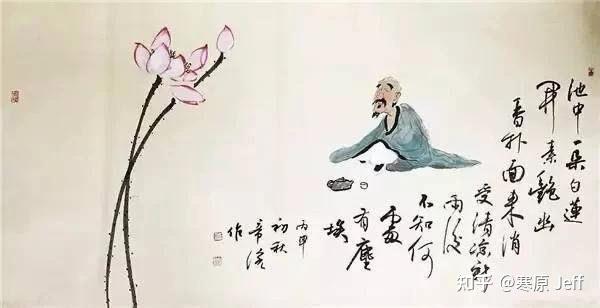 池中一朵白蓮
開素艷幽
香扑面来消
受清凉新
雨後
不知何
處
有塵
埃
丙申
初秋
作
知乎 @寒原 Jeff